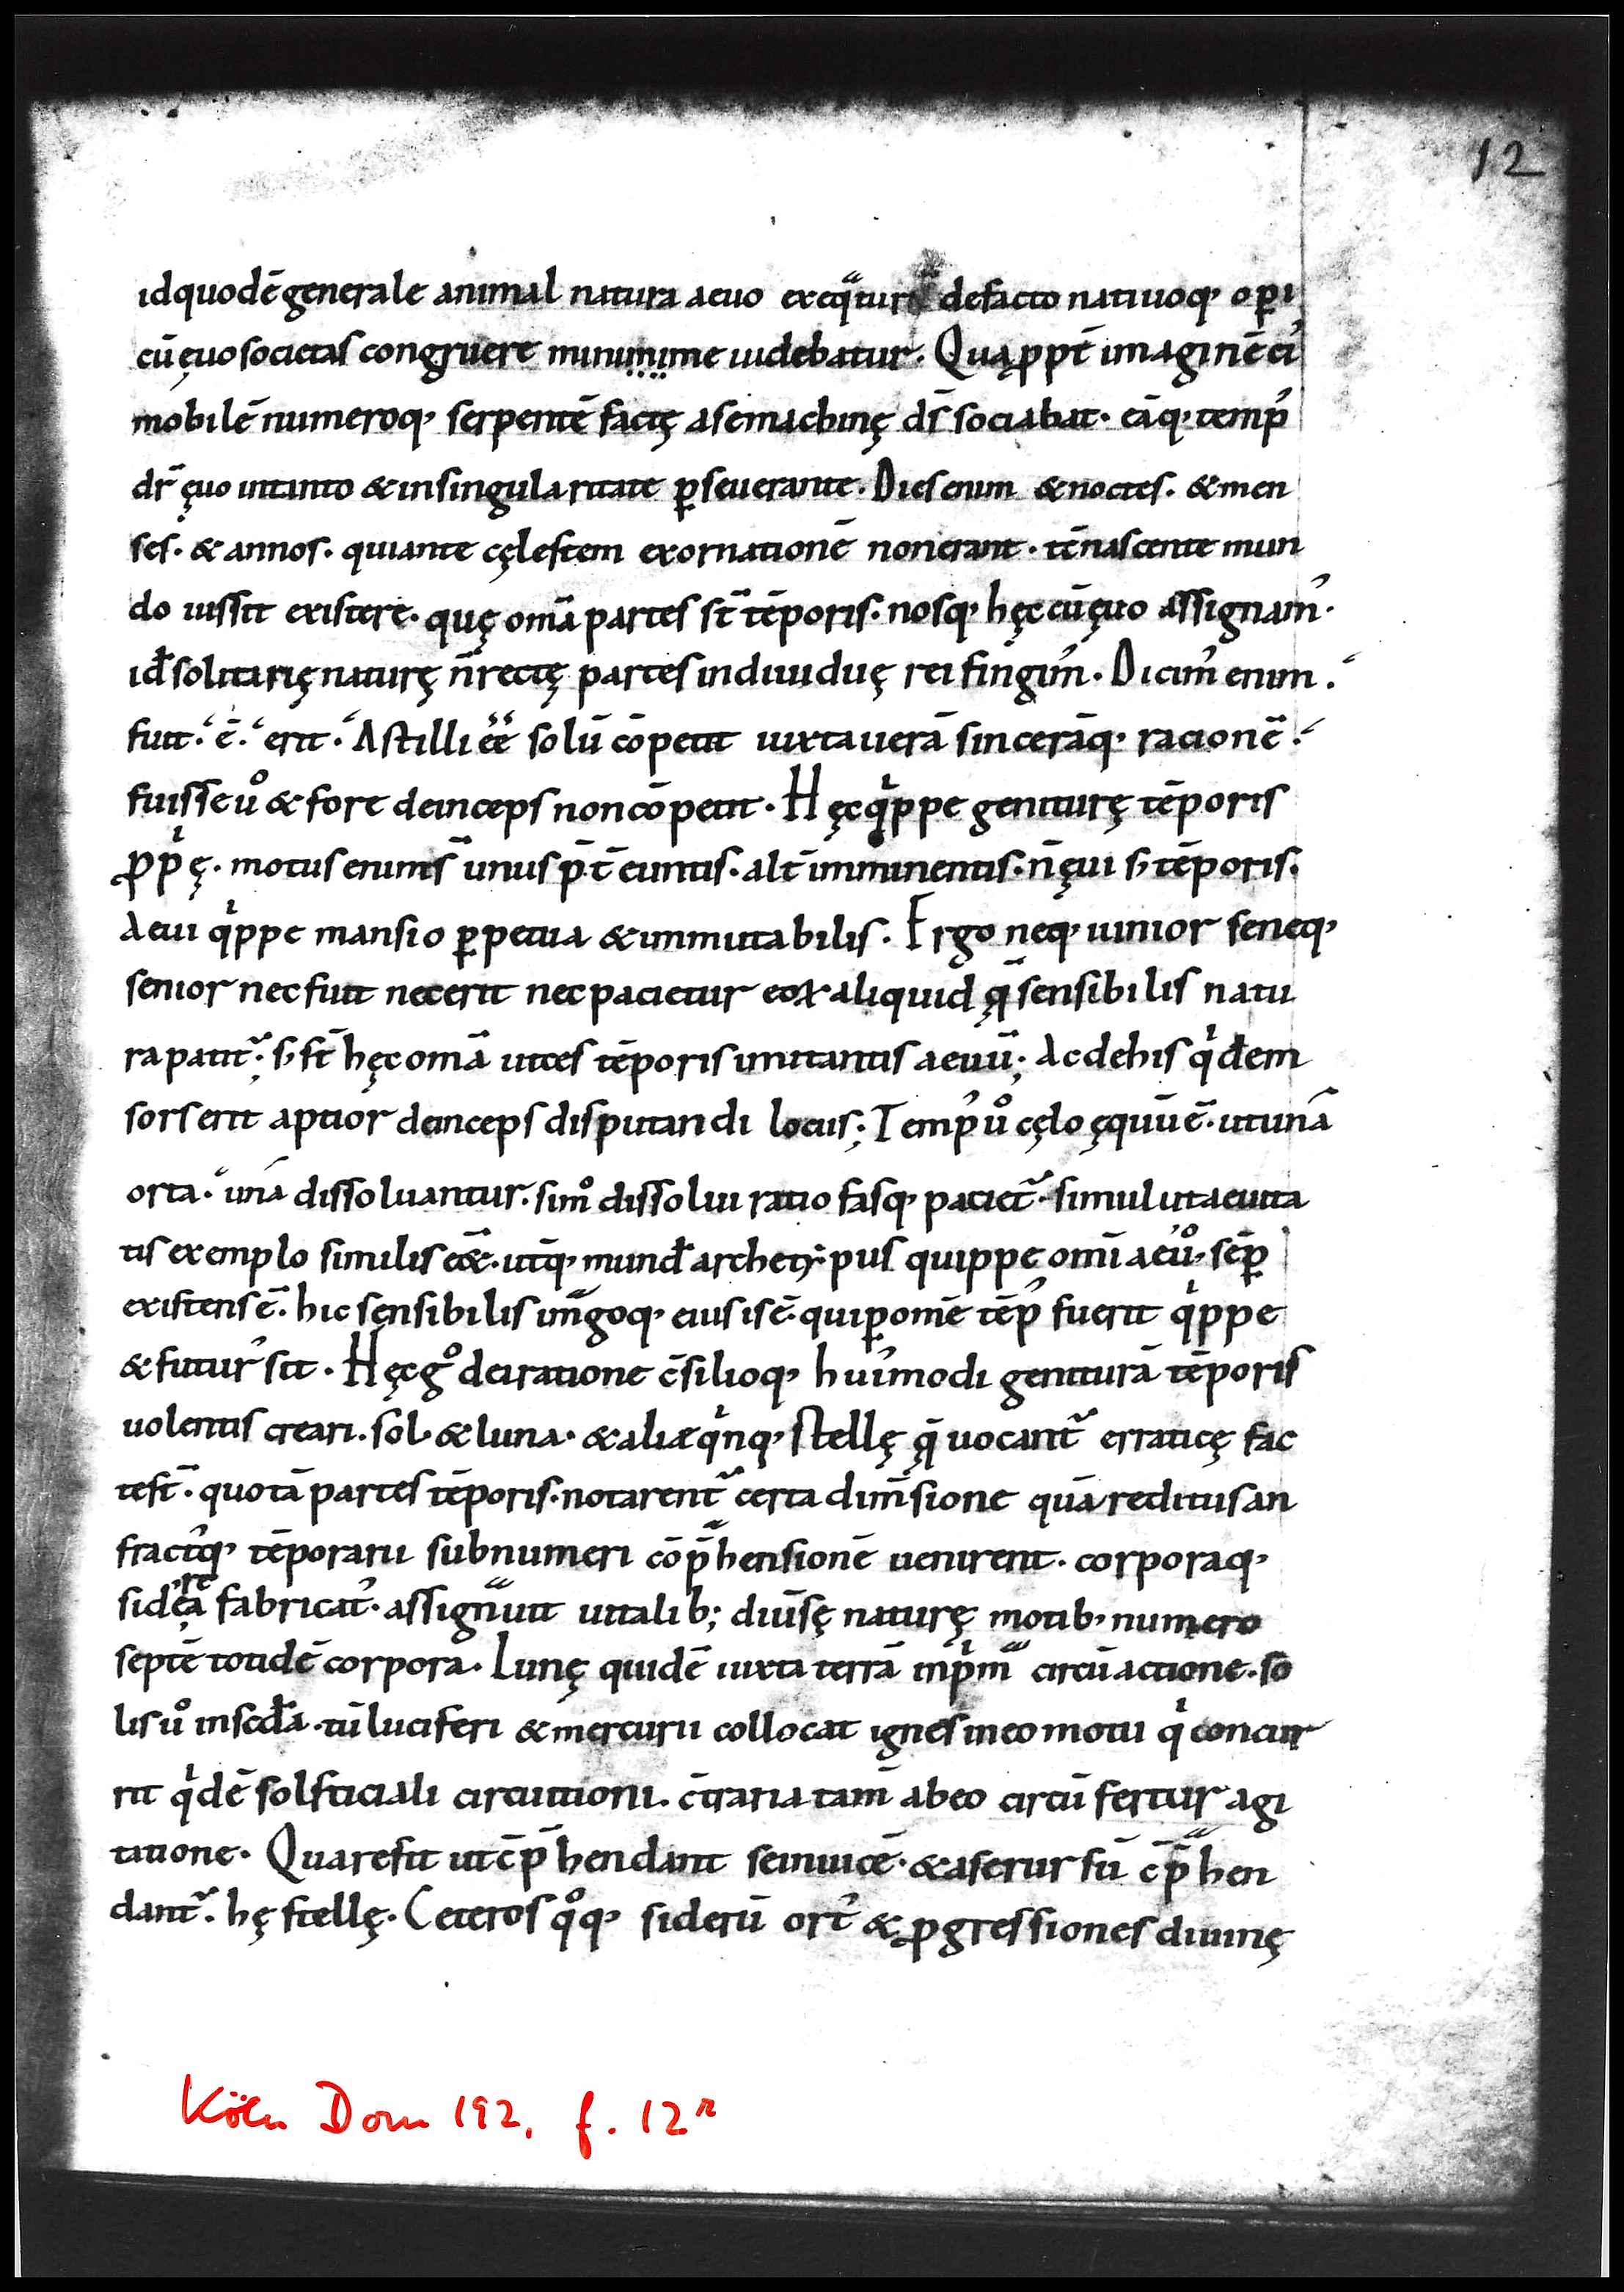 12
idquodē generale animal natura aeuo exeq̄tur defacto natiuoq; oꝑi
cū ęuo societas congruere minunime uidebatur. Quaꝓpt̄ imaginē ei᾿
mobilē numeroq; serpentē factę asemachinę dr̄ sociabat. eāq; temp᾿
dr̄ ęuo intanto &insingularitate ꝑseuerante. Dies enim &noctes. &men
ses. & annos. quiante cęlestem exornationē nonerant. tē nascente mun
do iussit existere. quę om̄a partes st̄ tēporis. nosq; hęc cū ęuo assignam᾿.
id ̄solitarię naturę n̄ rectę partes indiuiduę rei fingim᾿. Dicim᾿ enim.
fuit. ē. erit. Astilli ēē solū cōpetit iuxta uerā sincerāq; racionē.
fuisse ůo & fore deinceps non cōpetit. Hęc qͥppe geniturę tēporis
ꝓpͥę. motus enim s̄t unus p̄t̄ euntis. alt̄ imminentis. n̄ ęui s; tēporis.
Aeui qͥppe mansio ꝑpetua &immutabilis. Ergo neq; iunior seneq;
senior nec fuit necerit nec pacietur eoꝝ aliquid q̄ sensibilis natu
ra patit᷑; s; st̄ hęc om̄a uices tēporis imitantis aeuū; Ac dehis qͥdem
sors erit aptior deinceps disputandi locus; Temp᾿ uͦ cęlo ęquū ē. utunā
orta. unā dissoluantur. simͦ dissolui ratio fasq; paciet᷑. simul utaeuita
tis exemplo similis eēt. utq; mund᾿ archetypus quippe om̄i aeuͦ. sēꝑ
existens ē. hic sensibilis im̄goq; eius is ē. quiꝑ omē tēp᾿ fuerit qͥppe
& futur᾿ sit. Hęc gͦ dei ratione c̄silioq; hui᾿modi genitura tēporis
uolentis creari. sol. & luna. &aliæ qͥnq; stellę q̄ uocant᷑ erraticę fac
te st̄. quo tā partes tēporis. notarent᷑ certa dim̄sione quā reditus an
fract᾿q; tēporarii sub numeri cōp̄hensionē uenirent. corporaq;
siderea fabricat᾿. assign̄uit uitalib; diūsę naturę motib; numero
septē totidē corpora. Lunę quidē iuxta terrā inpͥm̄ circūactione. so
lis uͦ inscda. tū luciferi &mercurii collocat ignes ineo motu qͥ concur
rit qͥdē solsticiali circuitioni. c̄traria tam̄ abeo circū fertur agi
tatione. Quare fit ut c̄p̄hendant seinuicē. &aserursū c̄p̄hen
dant᷑. hę stellę. Ceteros qͦq; siderū ort᾿ & ꝓgressiones diuinę
Köln Dom 192, f. 12r